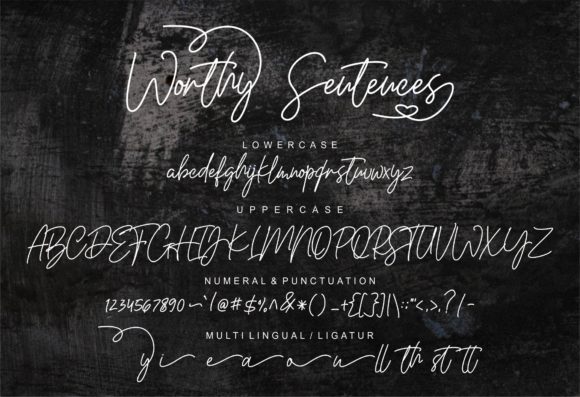 Worthy Sentences
LOWERCASE
abcdefghijklmnopqrstuvwxyz
UPPERCASE
ABCDEFGHIJKLMNOPQRSTUVWXYZ
NUMERAL & PUNCTUATION
1234567890 ~`(@#$%^&*()_+{[}]|\:;"'<,>.?/-
MULTI LINGUAL / LIGATUR
y i e a o u ll th st tt